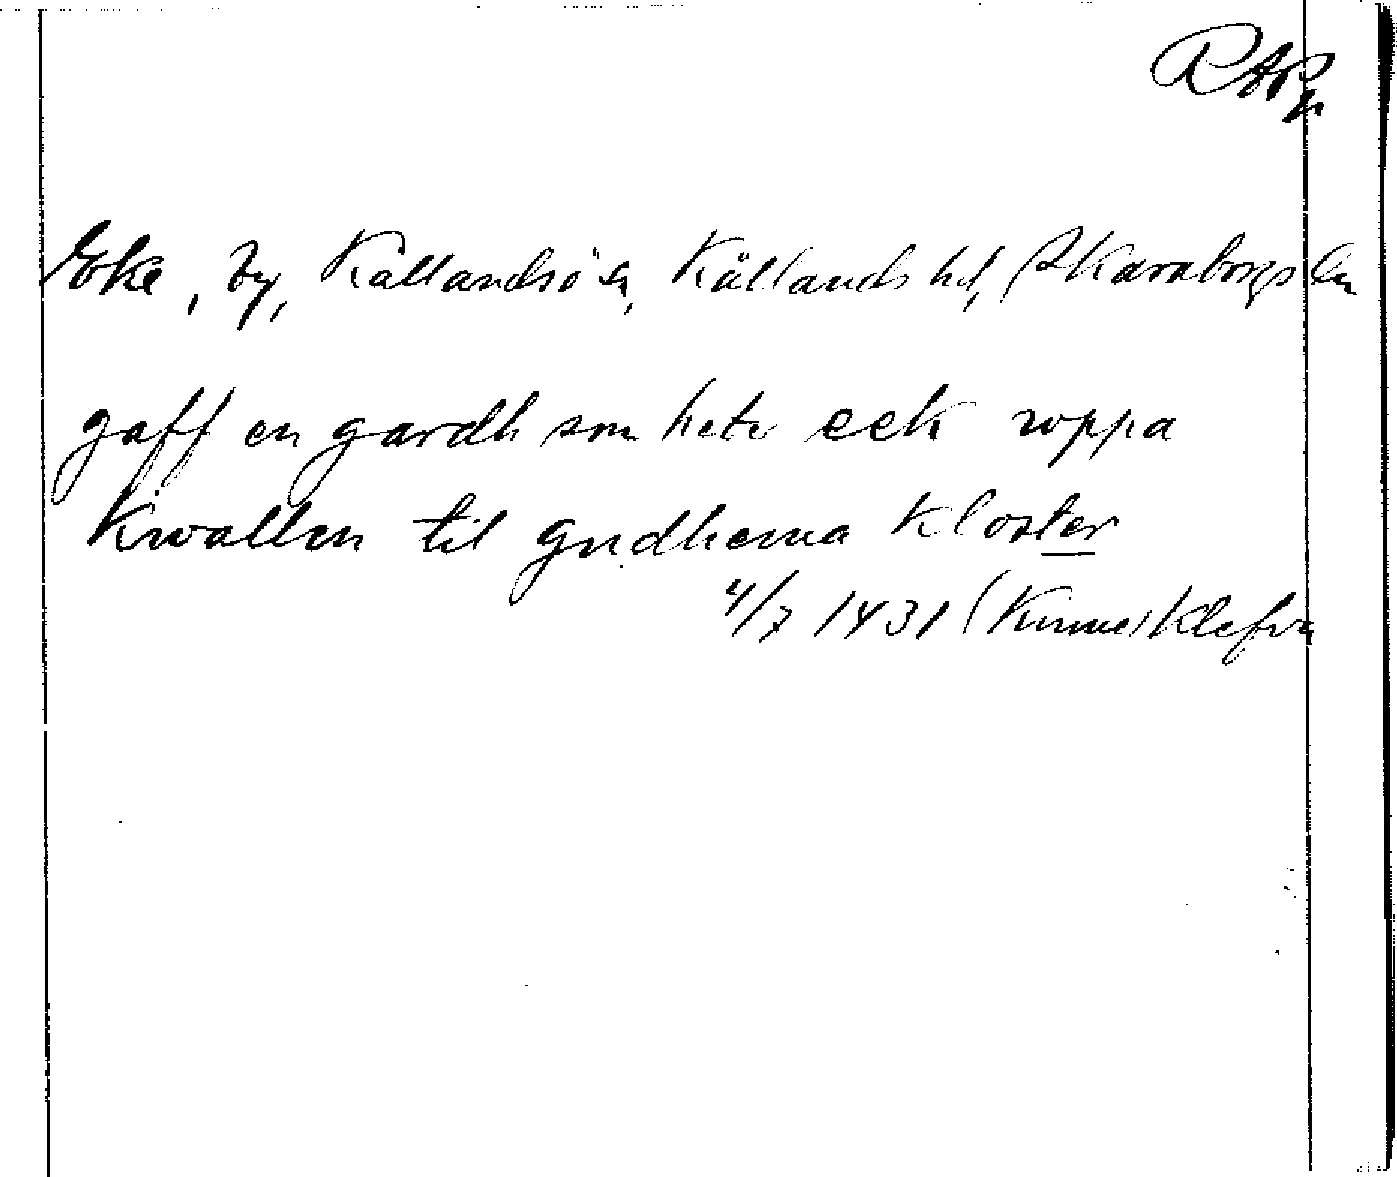 RAPg
Eke, by, Kållandsö sn, Kållands hd, Skaraborgs län
gaff en gardh som hete eek uppa
Kwallen til gudhema kloster
4/7 1431 (Kinne) Klefva